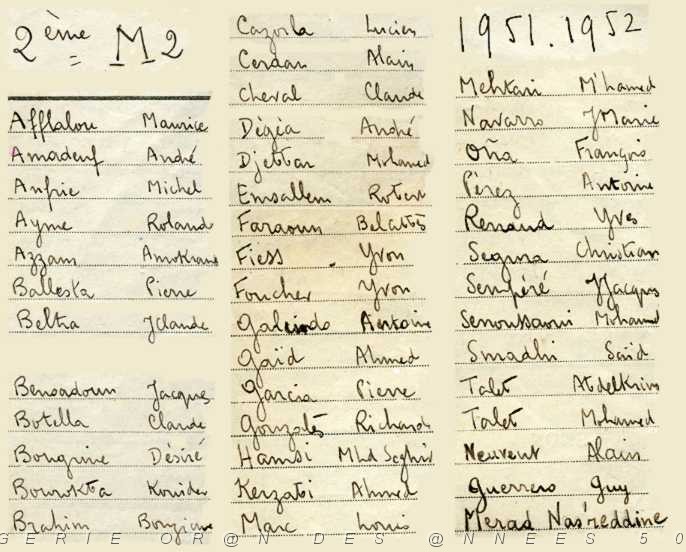 2ème M2
Afflalou Maurice
Amadeuf André
Anfrie Michel
Ayme Roland
Azzam
Ballesta Pierre
Beltra JClaude
Bensadoun Jacques
Botella Claude
Bongrine Désiré
Bourokta Kouider
Brahim
Cazorla Lucien
Cerdan Alain
Cheval Claude
Dégéa André
Djettar Mohamed
Emsallem Robert
Faraoun Belabbès
Fiess Yvon
Foucher Yvon
Galindo Antoine
Gaid Ahmed
Garcia Pierre
Gonzalès Richard
Hamsi Mhd Seghir
Kerzabi Ahmed
Marc Louis
1951.1952
Mehtari M'hamed
Navarro JMarie
Oña François
Pérez Antoine
Renaud Yves
Segura Christian
Sempéré JJacques
Senoussaoui Mohamed
Smadhi Saïd
Talet Abdelkrim
Talet Mohamed
Neuveut Alain
Guerrero Guy
Merad Nas'reddine
GERIE OR@N DES @NNEES 50